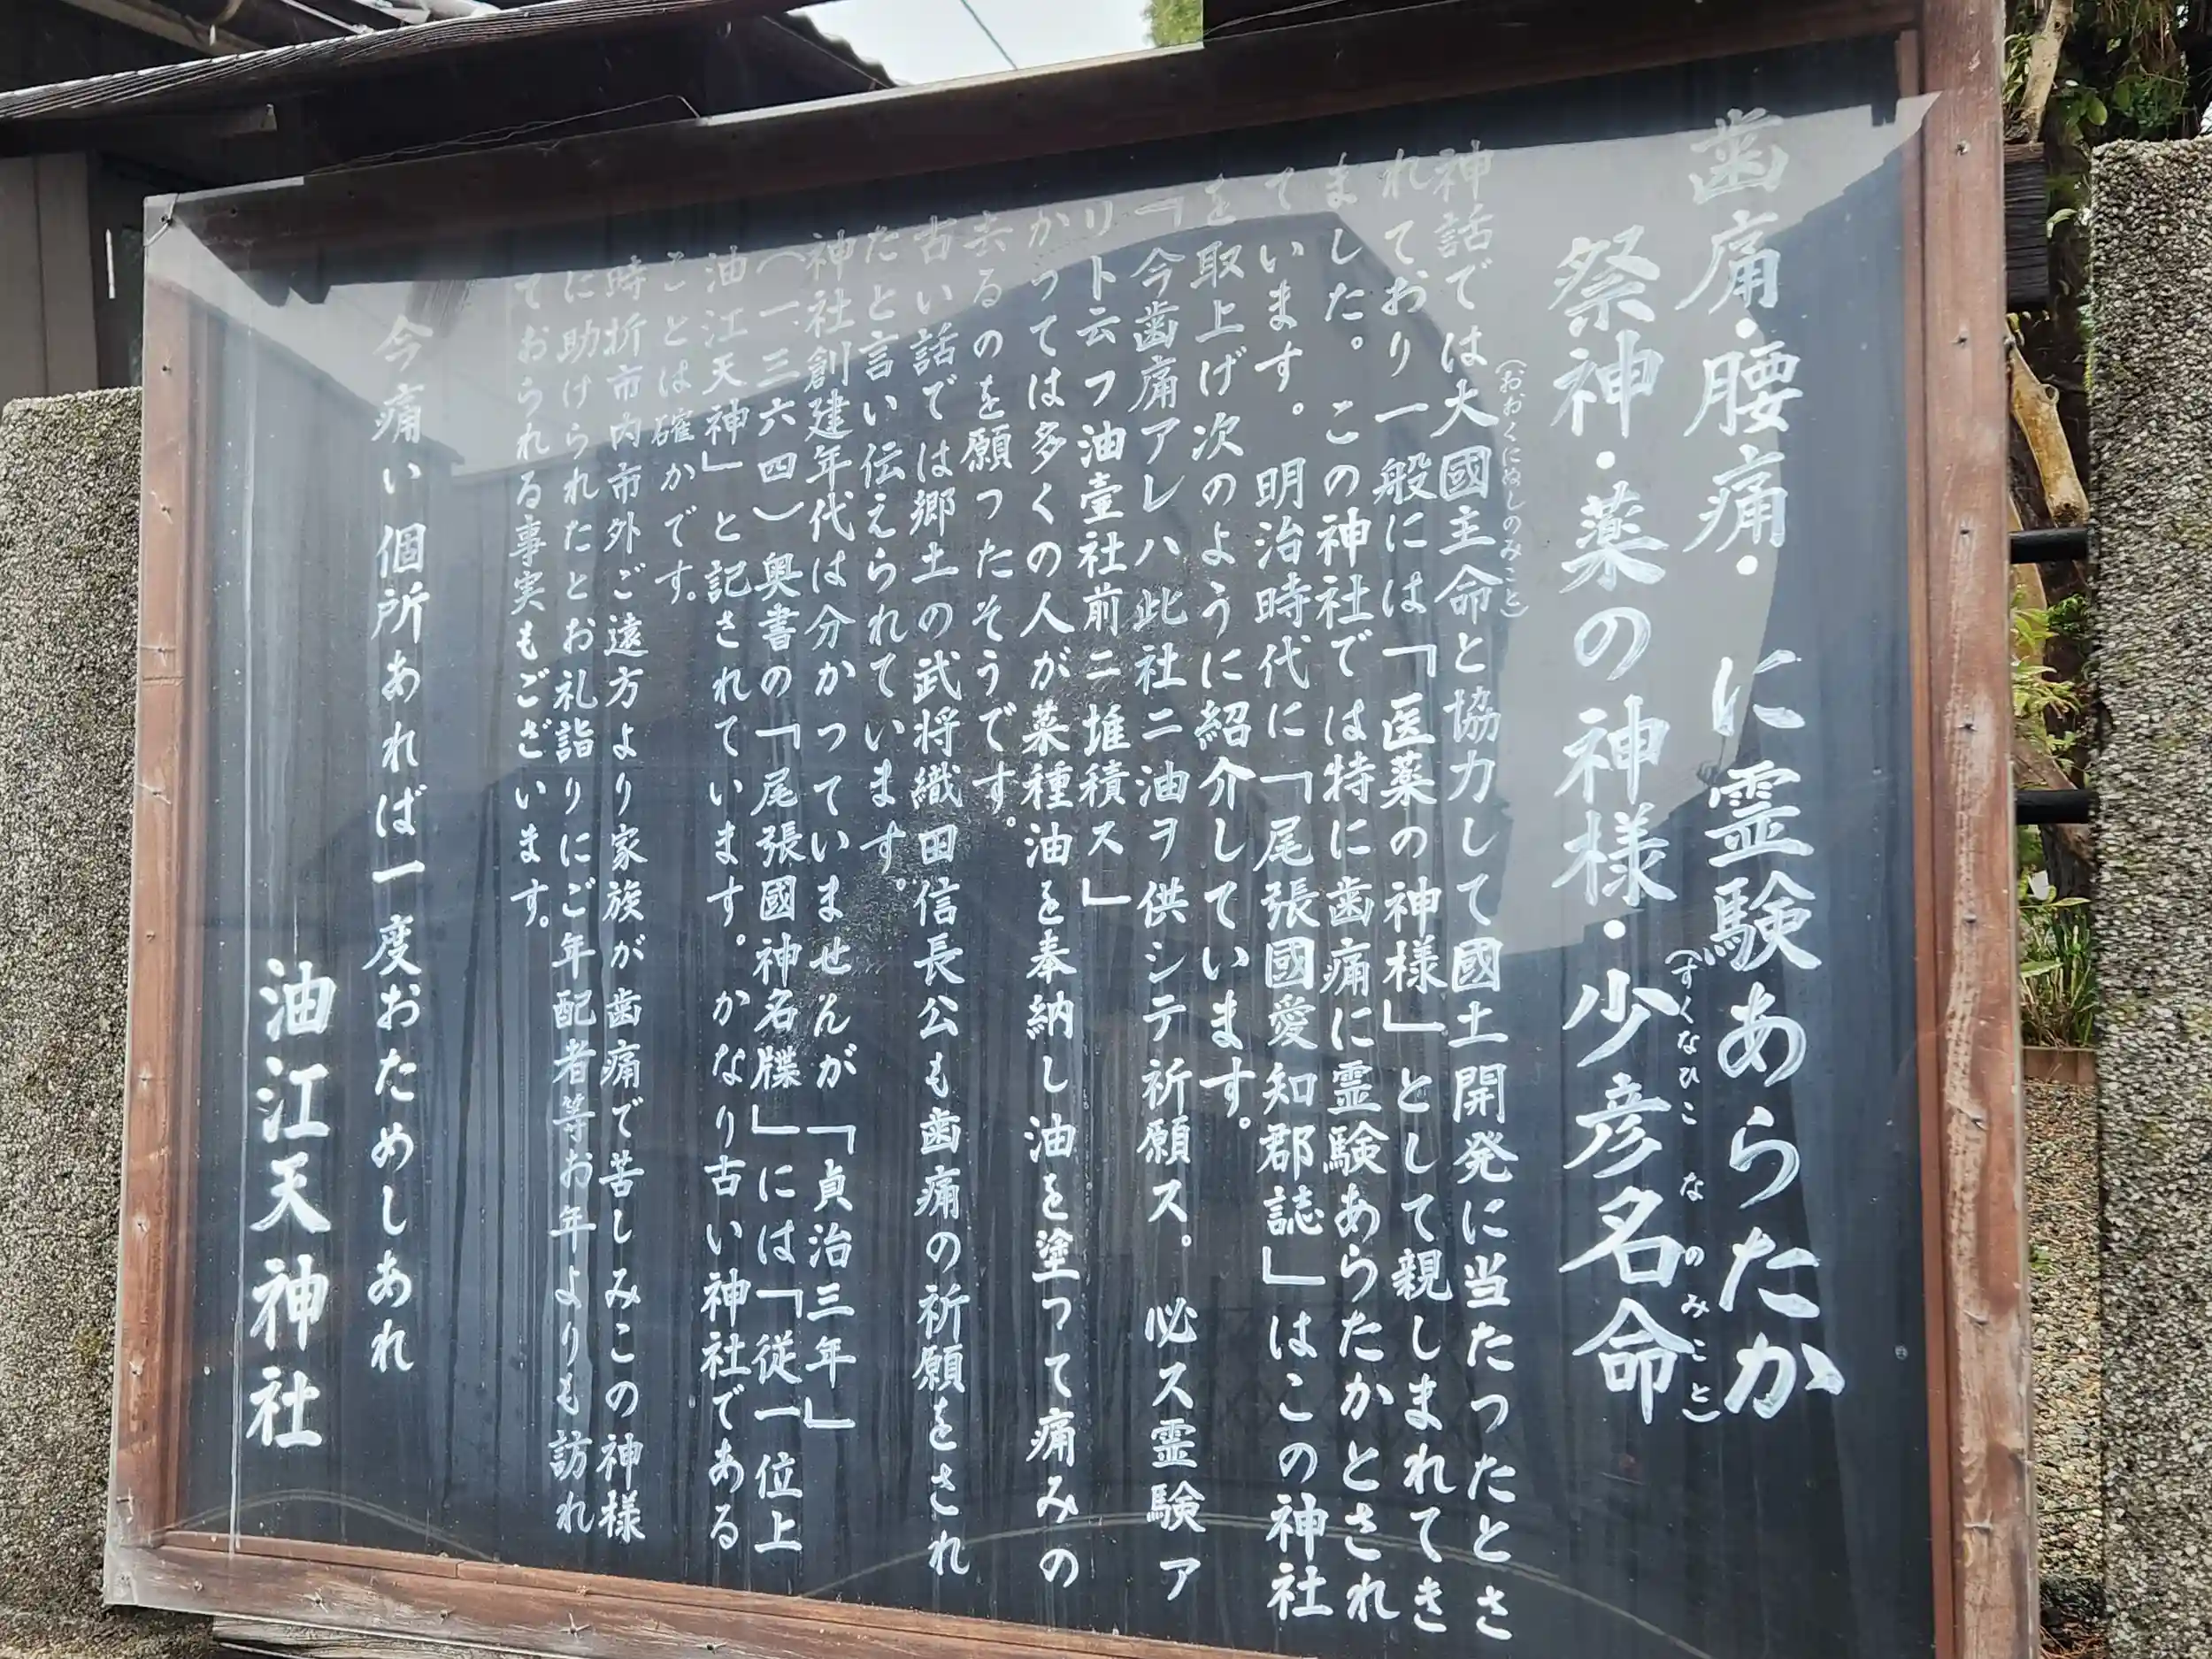 歯痛・腰痛・ に霊験あらたか
祭神・薬の神様・少彦名命
(すくなひこ な のみこと)
神話では大國主命と協力して國土開発に当たったとさ
(おおくにぬしのみこと)
れており一般には「医薬の神様」として親しまれてき
ました。この神社では特に歯痛に霊験あらたかとされ
ています。明治時代に「尾張國愛知郡誌」はこの神社
を取上げ次のように紹介しています。
「今歯痛アレハ此社ニ油ヲ供シテ祈願ス。必ス霊験ア
リト云フ油壷社前ニ堆積ス」
かつては多くの人が菜種油を奉納し油を塗って痛みの
去るのを願ったそうです。
古い話では郷土の武将織田信長公も歯痛の祈願をされ
たと言い伝えられています。
神社創建年代は分かっていませんが「貞治三年」
(一三六四)奥書の「尾張國神名牒」には「従一位上
油江天神」と記されています。かなり古い神社である
ことは確かです。
時折市内市外ご遠方より家族が歯痛で苦しみこの神様
に助けられたとお礼詣りにご年配者等お年よりも訪れ
ておられる事実もございます。
今痛い個所あれば一度おためしあれ
油江天神社